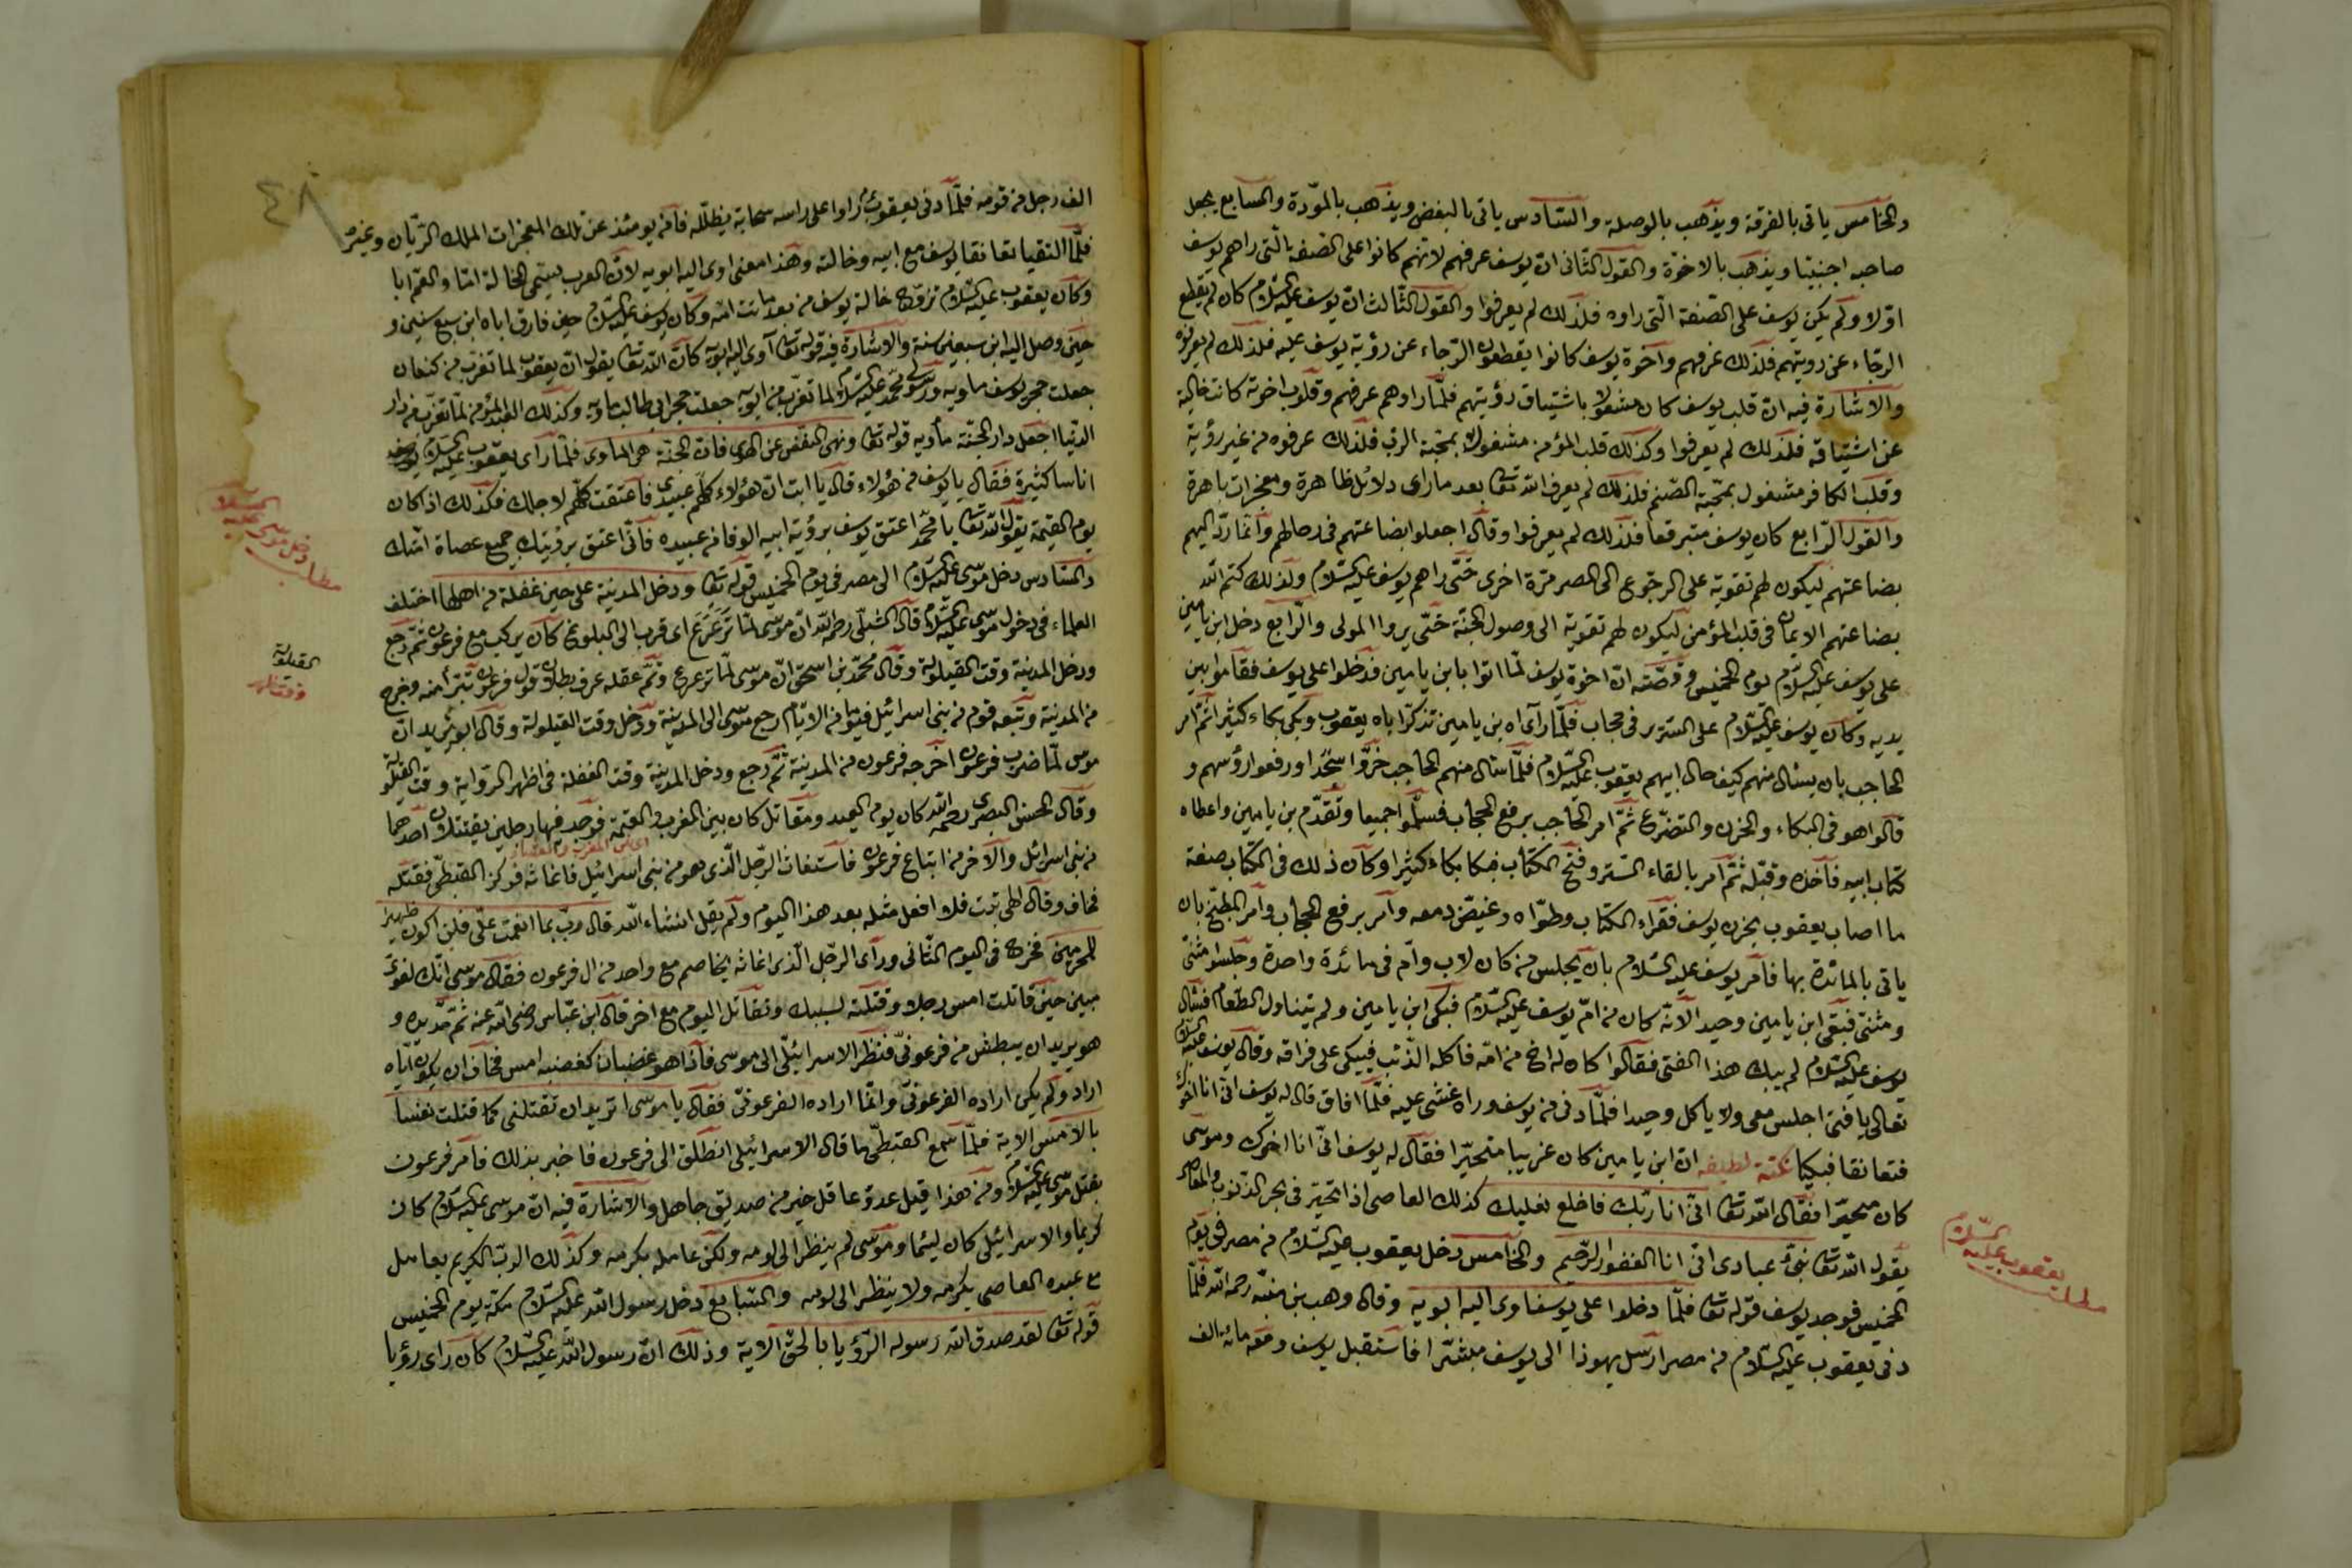 والخامس ياتى بالفرقة ويذهب بالوصلة والسادس ياتى بالبغض ويذهب بالمودة والسابع يجعل
صاحبه اجنبيا ويذهب بالاخوة والقول الثانى ان يوسف عرفهم لانهم كانوا على الصفة التى راهم يوسف
اولا ولم يكن يوسف على الصفة التى راوه فلذلك لم يعرفوا والقول الثالث ان يوسف عليه السلام كان لم يقطع
الرجاء عن رويتهم فلذلك عرفهم واخوة يوسف كانوا يقطعون الرجاء عن رؤية يوسف عليه فلذلك لم يعرفوه
والاشارة فيه ان قلب يوسف كان مشغولا باشتياق رؤيتهم فلما راوهم عرفهم وقلوب اخوته كانت خالية
عن اشتياقه فلذلك لم يعرفوا وكذلك قلب المؤمن مشغول بمحبة الرب فلذلك عرفوه من غير رؤية
وقلب الكافر مشغول بمحبة الصنم فلذلك لم يعرف الله تعا بعد ما راى دلائل ظاهرة ومعجزات باهرة
والقول الرابع كان يوسف متبرقعا فلذلك لم يعرفوا وقال اجعلوا بضاعتهم فى رحالهم وانما رد اليهم
بضاعتهم ليكون لهم تقوية على الرجوع الى المصر مرة اخرى حتى راهم يوسف عليه السلام ولذلك كتم الله
بضاعتهم الايمان فى قلب المؤمن ليكون لهم تقوية الى وصول الجنة حتى يروا المولى والرابع دخل ابن يامين
على يوسف عليه السلام يوم الخميس وقصته ان اخوة يوسف لما اتوا بابن يامين فدخلوا على يوسف فقاموا بين
يديه وكان يوسف عليه السلام على السترير فى حجاب فلما رآى اه بن يامين تذكر اباه يعقوب وبكى بكاء كثيرا ثم امر
الحاجب بان يسئال منهم كيف حال ابيهم يعقوب عليه السلام فلما سئال منهم الحاجب خروا سجدا ورفعوا رؤسهم و
قالوا هو فى البكاء والحزن والتضرع ثم امر الحاجب برفع الحجاب فسلموا جميعا وتقدم بن يامين واعطاه
كتاب ابيه فاخذه وقبله ثم امر بالقاء الستر وفتح الكتاب فبكا بكاء كثيرا وكان ذلك فى الكتاب صفة
ما اصاب يعقوب بحزن يوسف فقراء الكتاب وطواه وغيض دمعه وامر برفع الحجاب وامر المطبخ بان
ياتى بالمائدة بها فامر يوسف عليه السلام بان يجلس من كان لاب وام فى مائدة واحدة وجلسوا مثنى
ومثنى فبقى ابن يامين وحيدا لانه كان من ام يوسف عليه السلام فبكى ابن يامين ولم يتناول الطعام فسئال
يوسف عليه السلام لم يبك هذا الفتى فقالوا كان له اخ من امه فاكله الذئب فيبكى على فراقه وقال يوسف عليه السلام
تعالى يا فتى اجلس معى ولا ياكل وحيدا فلما دنى من يوسف وراه غشى عليه فلما افاق قال له يوسف انى انا اخوك
فتعانقا فبكيا نكتة لطيفه ان ابن يامين كان غريبا متحيرا فقال له يوسف انى انا اخوك وموسى
كان متحيرا فقال الله تعا انى انا ربك فاخلع نعليك كذلك العاصى اذا تحير فى بحر الذنوب والمعاصى
يقول الله تعا نبئ عبادى انى انا الغفور الرحيم والخامس دخل يعقوب عليه السلام من مصر فى يوم
الخميس فوجد يوسف قوله تعا فلما دخلوا على يوسف اوى اليه ابويه وقال وهب بن منبه رحمه الله فلما
دنى يعقوب عليه السلام من مصر ارسل يهوذا الى يوسف مبشرا فاستقبل يوسف ومعه مائه الف
مطلب يعقوب عليه السلام
٤٨
الف رجل من قومه فلما دنى يعقوب راوا على راسه سحابة يظلله فآمن يومئذ عن تلك المعجزات الملك الريان وغيره
فلما التقيا تعانقا يوسف مع ابيه وخالته وهذا معنى اوى اليه ابويه لان العرب يسمى الخالة اما والعم ابا
وكان يعقوب عليه السلام تزوج خالة يوسف من بعد ماتت امه وكان يوسف عليه السلام حين فارق اباه ابن سبع سنين و
حين وصل اليه ابن سبعين سنة والاشارة فيه قوله تعا آوى اليه ابويه كان الله تعا يقول ان يعقوب لما تغرب من كنعان
جعلت حجر يوسف ماويه ورسولى محمد عليه السلام لما تغرب من ابويه جعلت حجر ابى طالب ماويه وكذلك العبد المؤمن لما تغرب من دار
الدنيا اجعل دار الجنة مأويه قوله تعا ونهى النفس عن الهوى فان الجنة هى الماوى فلما رآى يعقوب عليه السلام يوسف
اناسا كثيرة فقال يا يوسف من هؤلاء قال يا ابت ان هؤلاء كلهم عبيدى فاعتقت كلهم لاجلك فكذلك اذا كان
يوم القيمة يقول الله تعا يا محمد اعتق يوسف برؤية ابيه الوفا من عبيده فانى اعتق برؤيتك جميع عصاة امتك
والسادس دخل موسى عليه السلام الى مصر فى يوم الخميس قوله تعا ودخل المدينة على حين غفلة من اهلها اختلف
العلماء فى دخول موسى عليه السلام قال الشبلى رحمه الله ان موسى لما ترعرع اى قرب الى البلوغ كان يركب مع فرعون ثم رجع
ودخل المدينة وقت القيلولة وقال محمد بن اسحق ان موسى لما ترعرع وتم عقله عرف بطلان قول فرعون تبرأ منه وخرج
من المدينة وتبعه قوم من بنى اسرائل فيوما من الايام رجع موسى الى المدينة ودخل وقت القيلولة وقال ابو يزيد ان
موسى لما ضرب فرعون اخرجه فرعون من المدينة ثم رجع ودخل المدينة وقت الغفلة فى اظهر الرواية وقت القيلولة
وقال الحسن البصرى رحمه الله كان يوم العيد ومقاتل كان بين المغرب والعتمة فوجد فيها رجلين يقتتلان احدهما
اى بين المغرب والعشاء
من بنى اسرائل والآخر من اتباع فرعون فاستغاث الرجل الذى هو من بنى اسرائيل فاغاثه فوكز القبطى فقتله
فخاف وقال الهى تبت فلا افعل مثله بعد هذا اليوم ولم يقل انشاء الله قال رب بما انعمت على فلن اكون ظهيرا
للمجرمين فخرج فى اليوم الثانى ورآى الرجل الذى اغاثه يخاصم مع واحد من ال فرعون فقال موسى انك لغوى
مبين حين قاتلت امس رجلا وقتلته لسببك وتقاتل اليوم مع اخر قال ابن عباس رضى الله عنه ثم مد يده و
هو يريد ان يبطش من فرعونى فنظر الاسرائيلى الى موسى فاذا هو غضبان كغضبه امس فخاف ان يكون اياه
اراد ولم يكن اراده الفرعونى وانما اراده الفرعونى فقال يا موسى اتريد ان تقتلنى كما قتلت نفسا
بالامس الاية فلما سمع القبطى ما قال الاسرائيلى انطلق الى فرعون فاخبر بذلك فامر فرعون
بقتل موسى عليه السلام ومن هذا قيل عدو عاقل خير من صديق جاهل والاشارة فيه ان موسى عليه السلام كان
كريما والاسرائيلى كان ليئما وموسى لم ينظر الى لومه ولكن عامله بكرمه وكذلك الرب الكريم يعامل
مع عبده العاصى بكرمه ولا ينظر الى لومه والسابع دخل رسول الله عليه السلام مكة يوم الخميس
قوله تعا لقد صدق الله رسوله الرؤيا بالحق الاية وذلك ان رسول الله عليه السلام كان راى رؤيا
مطلب دخل موسى عليه السلام
القيلولة